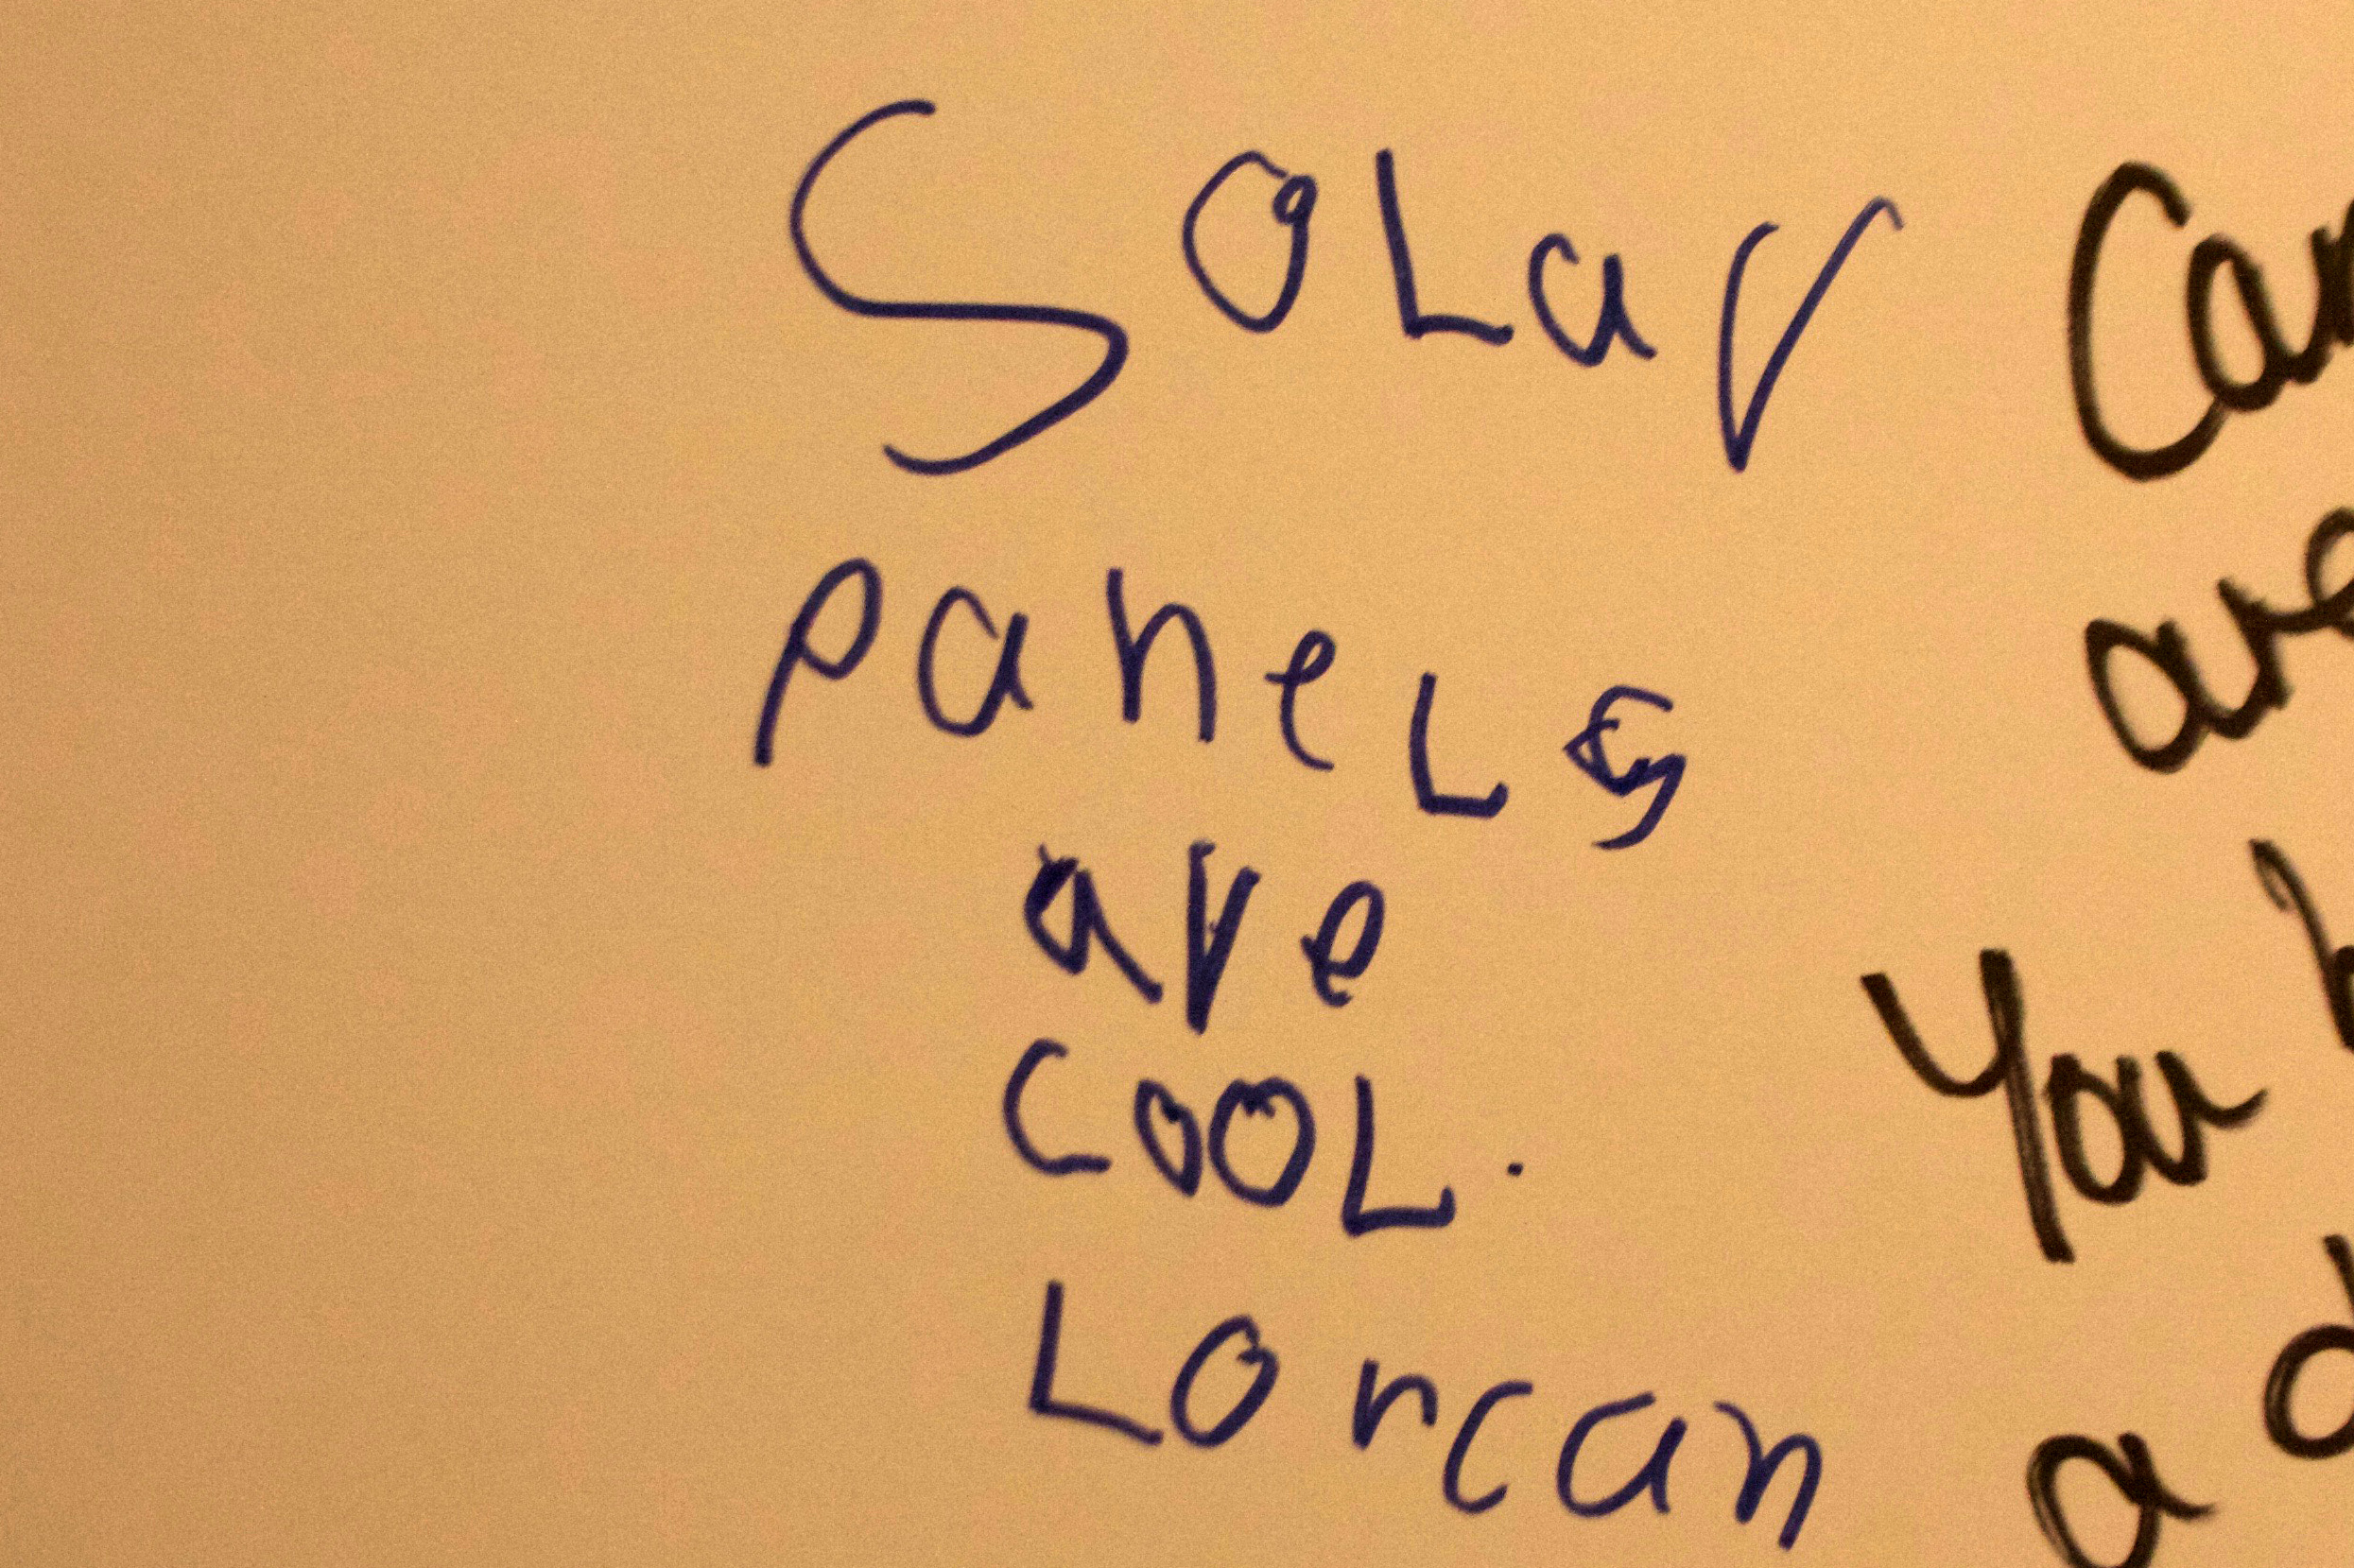 SOLar
PaneLs
are
COOL.
LOrcan
are
You
a